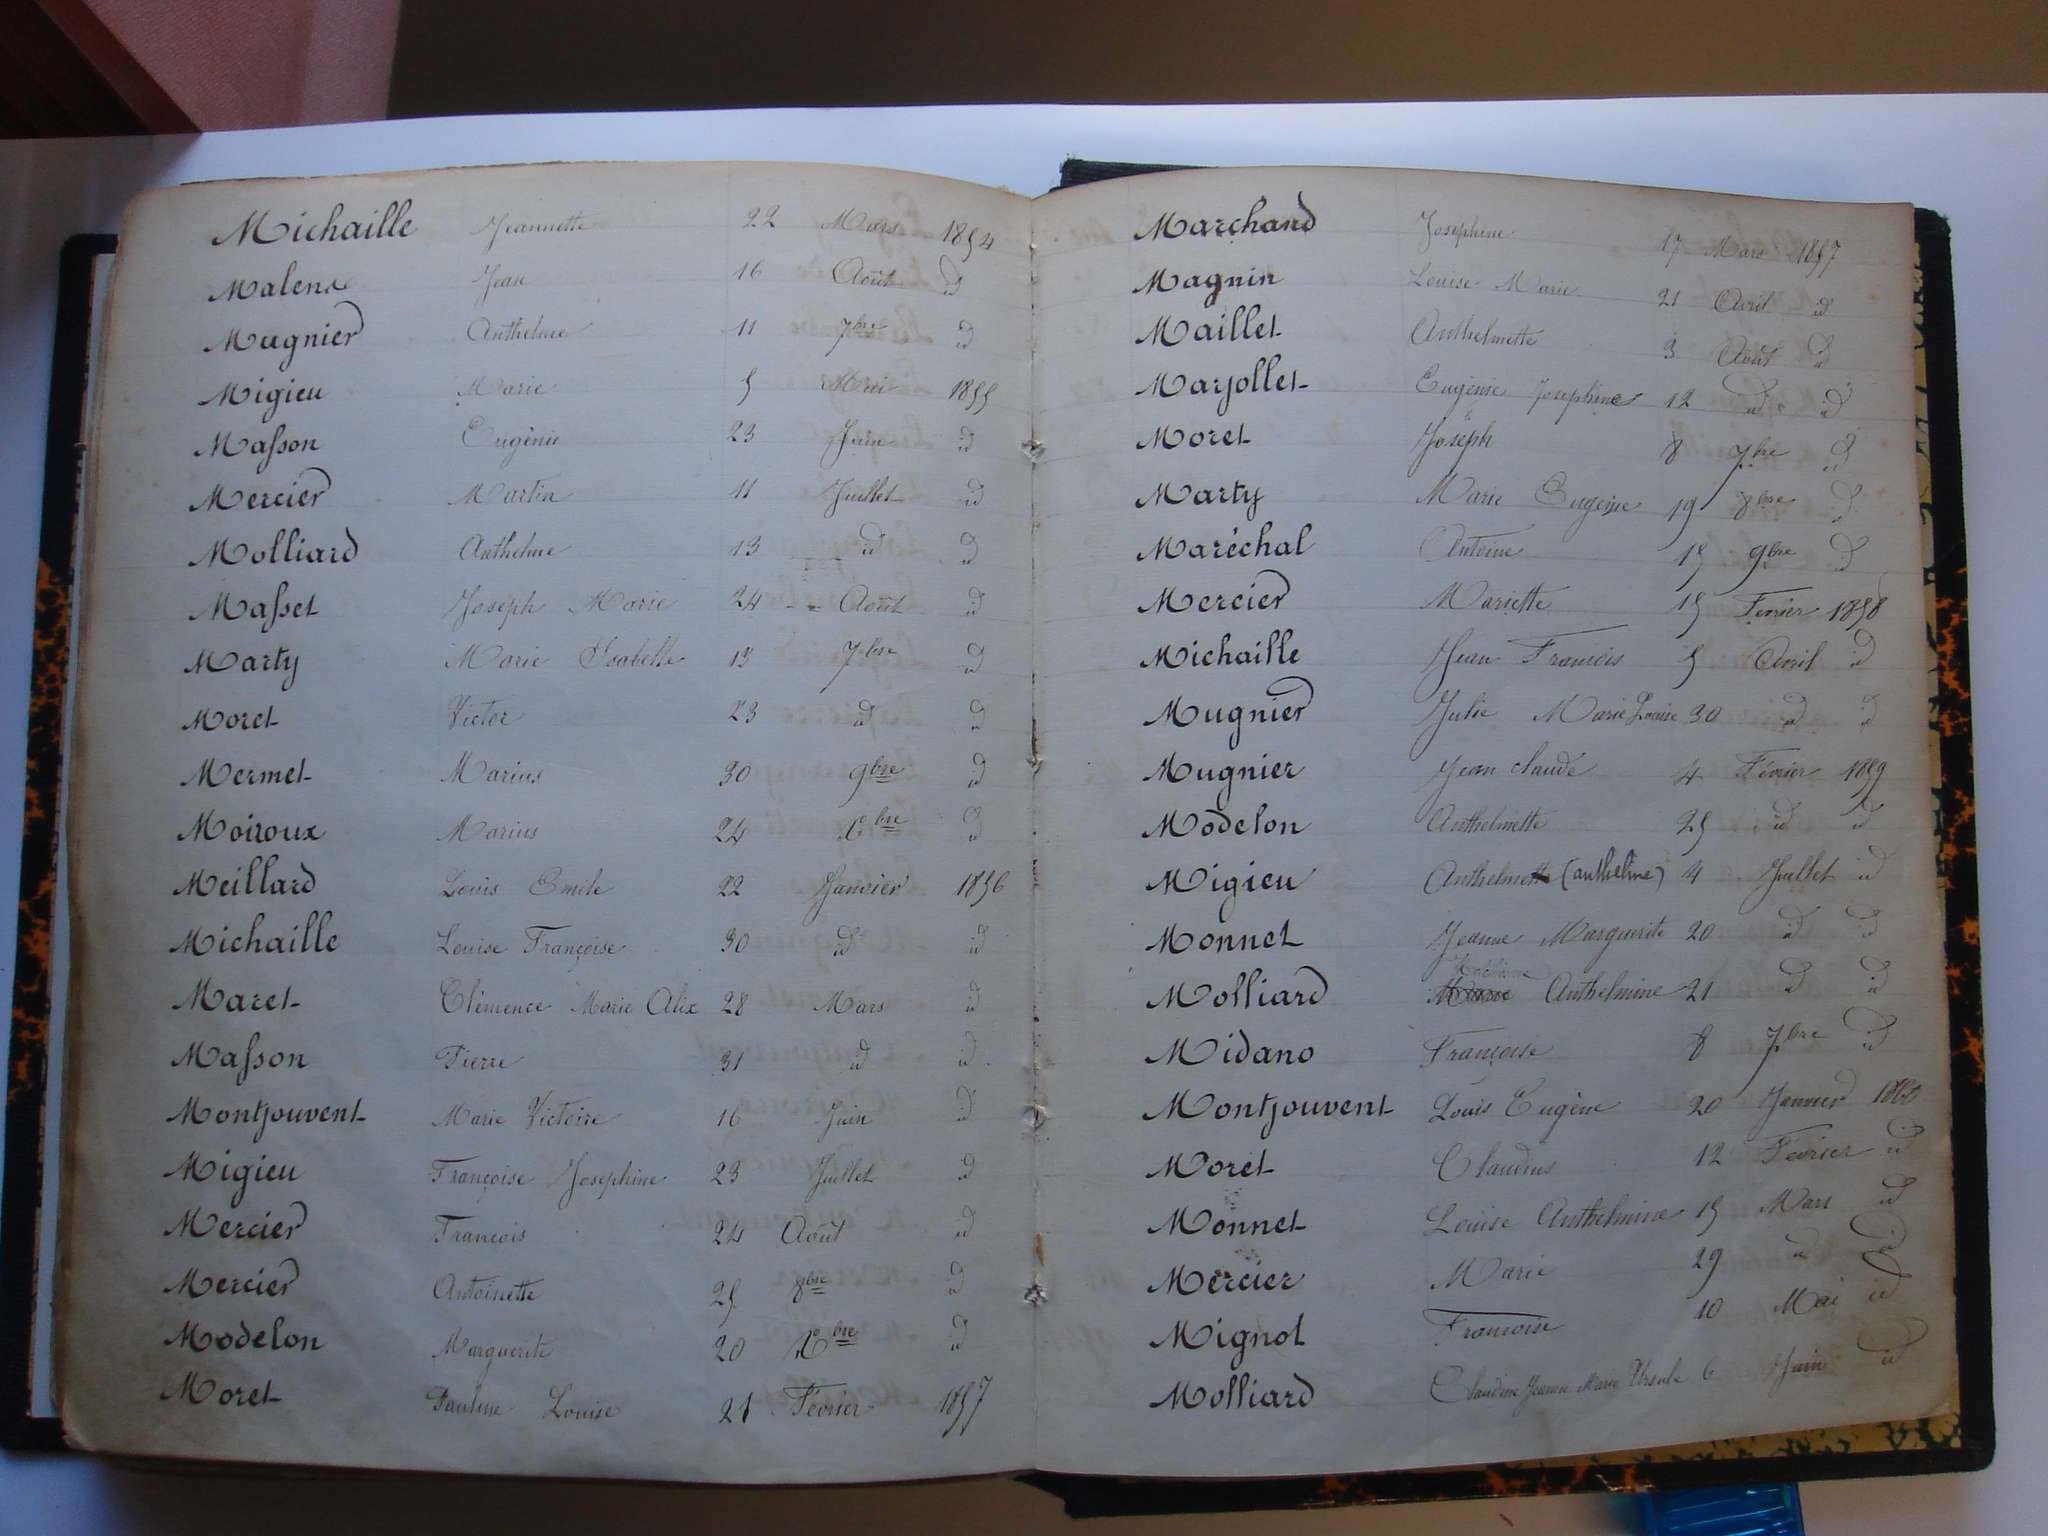 Michaille Jeannette 22 Mars 1854
Malens Jean 16 Août id
Mugnier Anthelme 11 7bre id
Migieu Marie 5 Mai 1855
Masson Eugénie 23 Juin id
Mercier Martin 11 Juillet id
Molliard Anthelme 13 id id
Masset Joseph Marie 24 Août id
Marty Marie Isabelle 13 7bre id
Moret Victor 23 id id
Mermet Marius 30 9bre id
Moiroux Marius 24 Xbre id
Meillard Louis Emile 22 Janvier 1856
Michaille Louise Françoise 30 id id
Maret Clémence Marie Alix 28 Mars id
Masson Pierre 31 id id
Montjouvent Marie Victoire 16 Juin id
Migieu Françoise Josephine 23 Juillet id
Mercier François 24 Août id
Mercier Antoinette 25 8bre id
Modelon Marguerite 20 Xbre id
Moret Pauline Louise 21 Février 1857
Marchand Josephine 17 Mars 1857
Magnin Louise Marie 21 Avril id
Maillet Anthelmette 3 Août id
Marjollet Eugénie Josephine 12 id id
Moret Joseph 8 7bre id
Marty Marie Eugénie 19 8bre id
Maréchal Antoine 15 9bre id
Mercier Mariette 15 Fevrier 1858
Michaille Jean François 5 Avril id
Mugnier Julie Marie Louise 30 id id
Mugnier Jean claude 4 Février 1859
Modelon Anthelmette 25 id id
Migieu Anthelmette (anthelme) 4 Juillet id
Monnet Jeanne Marguerite 20 id id
Molliard Marie Anthelmine 21 id id
Midano Françoise 8 7bre id
Montjouvent Louis Eugène 20 Janvier 1860
Moret Claudius 12 Fevrier id
Monnet Louise Anthelmine 15 Mars id
Mercier Marie 29 id id
Mignot Francoise 10 Mai id
Molliard Claudine Jeanne Marie Ursule 6 Juin id